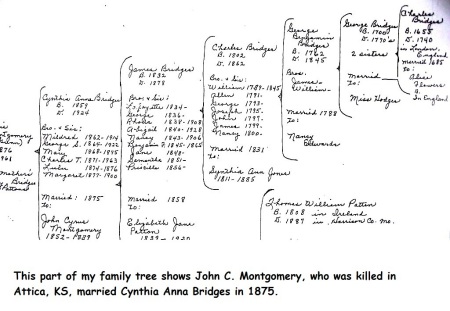 Montgomery
1876
1961
mother:
Bridges
Cynthia Anna Bridges
B. 1857
D. 1924
Bro. & Sis:
Mildred 1862-1914
George S. 1864-1922
Mary 1868-1845
Charles T. 1871-1963
Luster 1874-1876
Margaret 1877-1900
Married: 1875
To:
John Cyrus
Montgomery
James Bridges
B. 1832
D. 1878
Bro & Sis:
Lafayette 1834-
George 1836-
Abigail 1840-1928
Nancy 1843-1906
Benjamin F. 1845-1865
Jane 1848-
Samantha 1851-
Priscilla 1856-
Married 1858
To:
Elizabeth Jane
Patton
Charles Bridges
B. 1802
D. 1862
Bro. & Sis:
William 1789-1845
Allen 1791-
George 1793-
Joseph 1795-
John 1797-
James 1799-
Nancy 1800-
Married 1831
To:
Synthia Ann Jones
1811-1885
George
Benjamin
Bridges
B. 1762
D. 1845
Bros.
James-
William-
Married 1788
To:
Nancy
Edwards
George Bridges
B. 1700
D. 1770's
2 sisters
Married
To:
Miss Hodges
Charles
Bridges
B. 1655
D. 1740
in London,
England
married 1685
to:
Alice
Flowers
In England
Thomas William Patton
B. 1808 in Ireland
D. 1887 in Harrison Co. Mo.
This part of my family tree shows John C. Montgomery, who was killed in
Attica, KS, married Cynthia Anna Bridges in 1875.